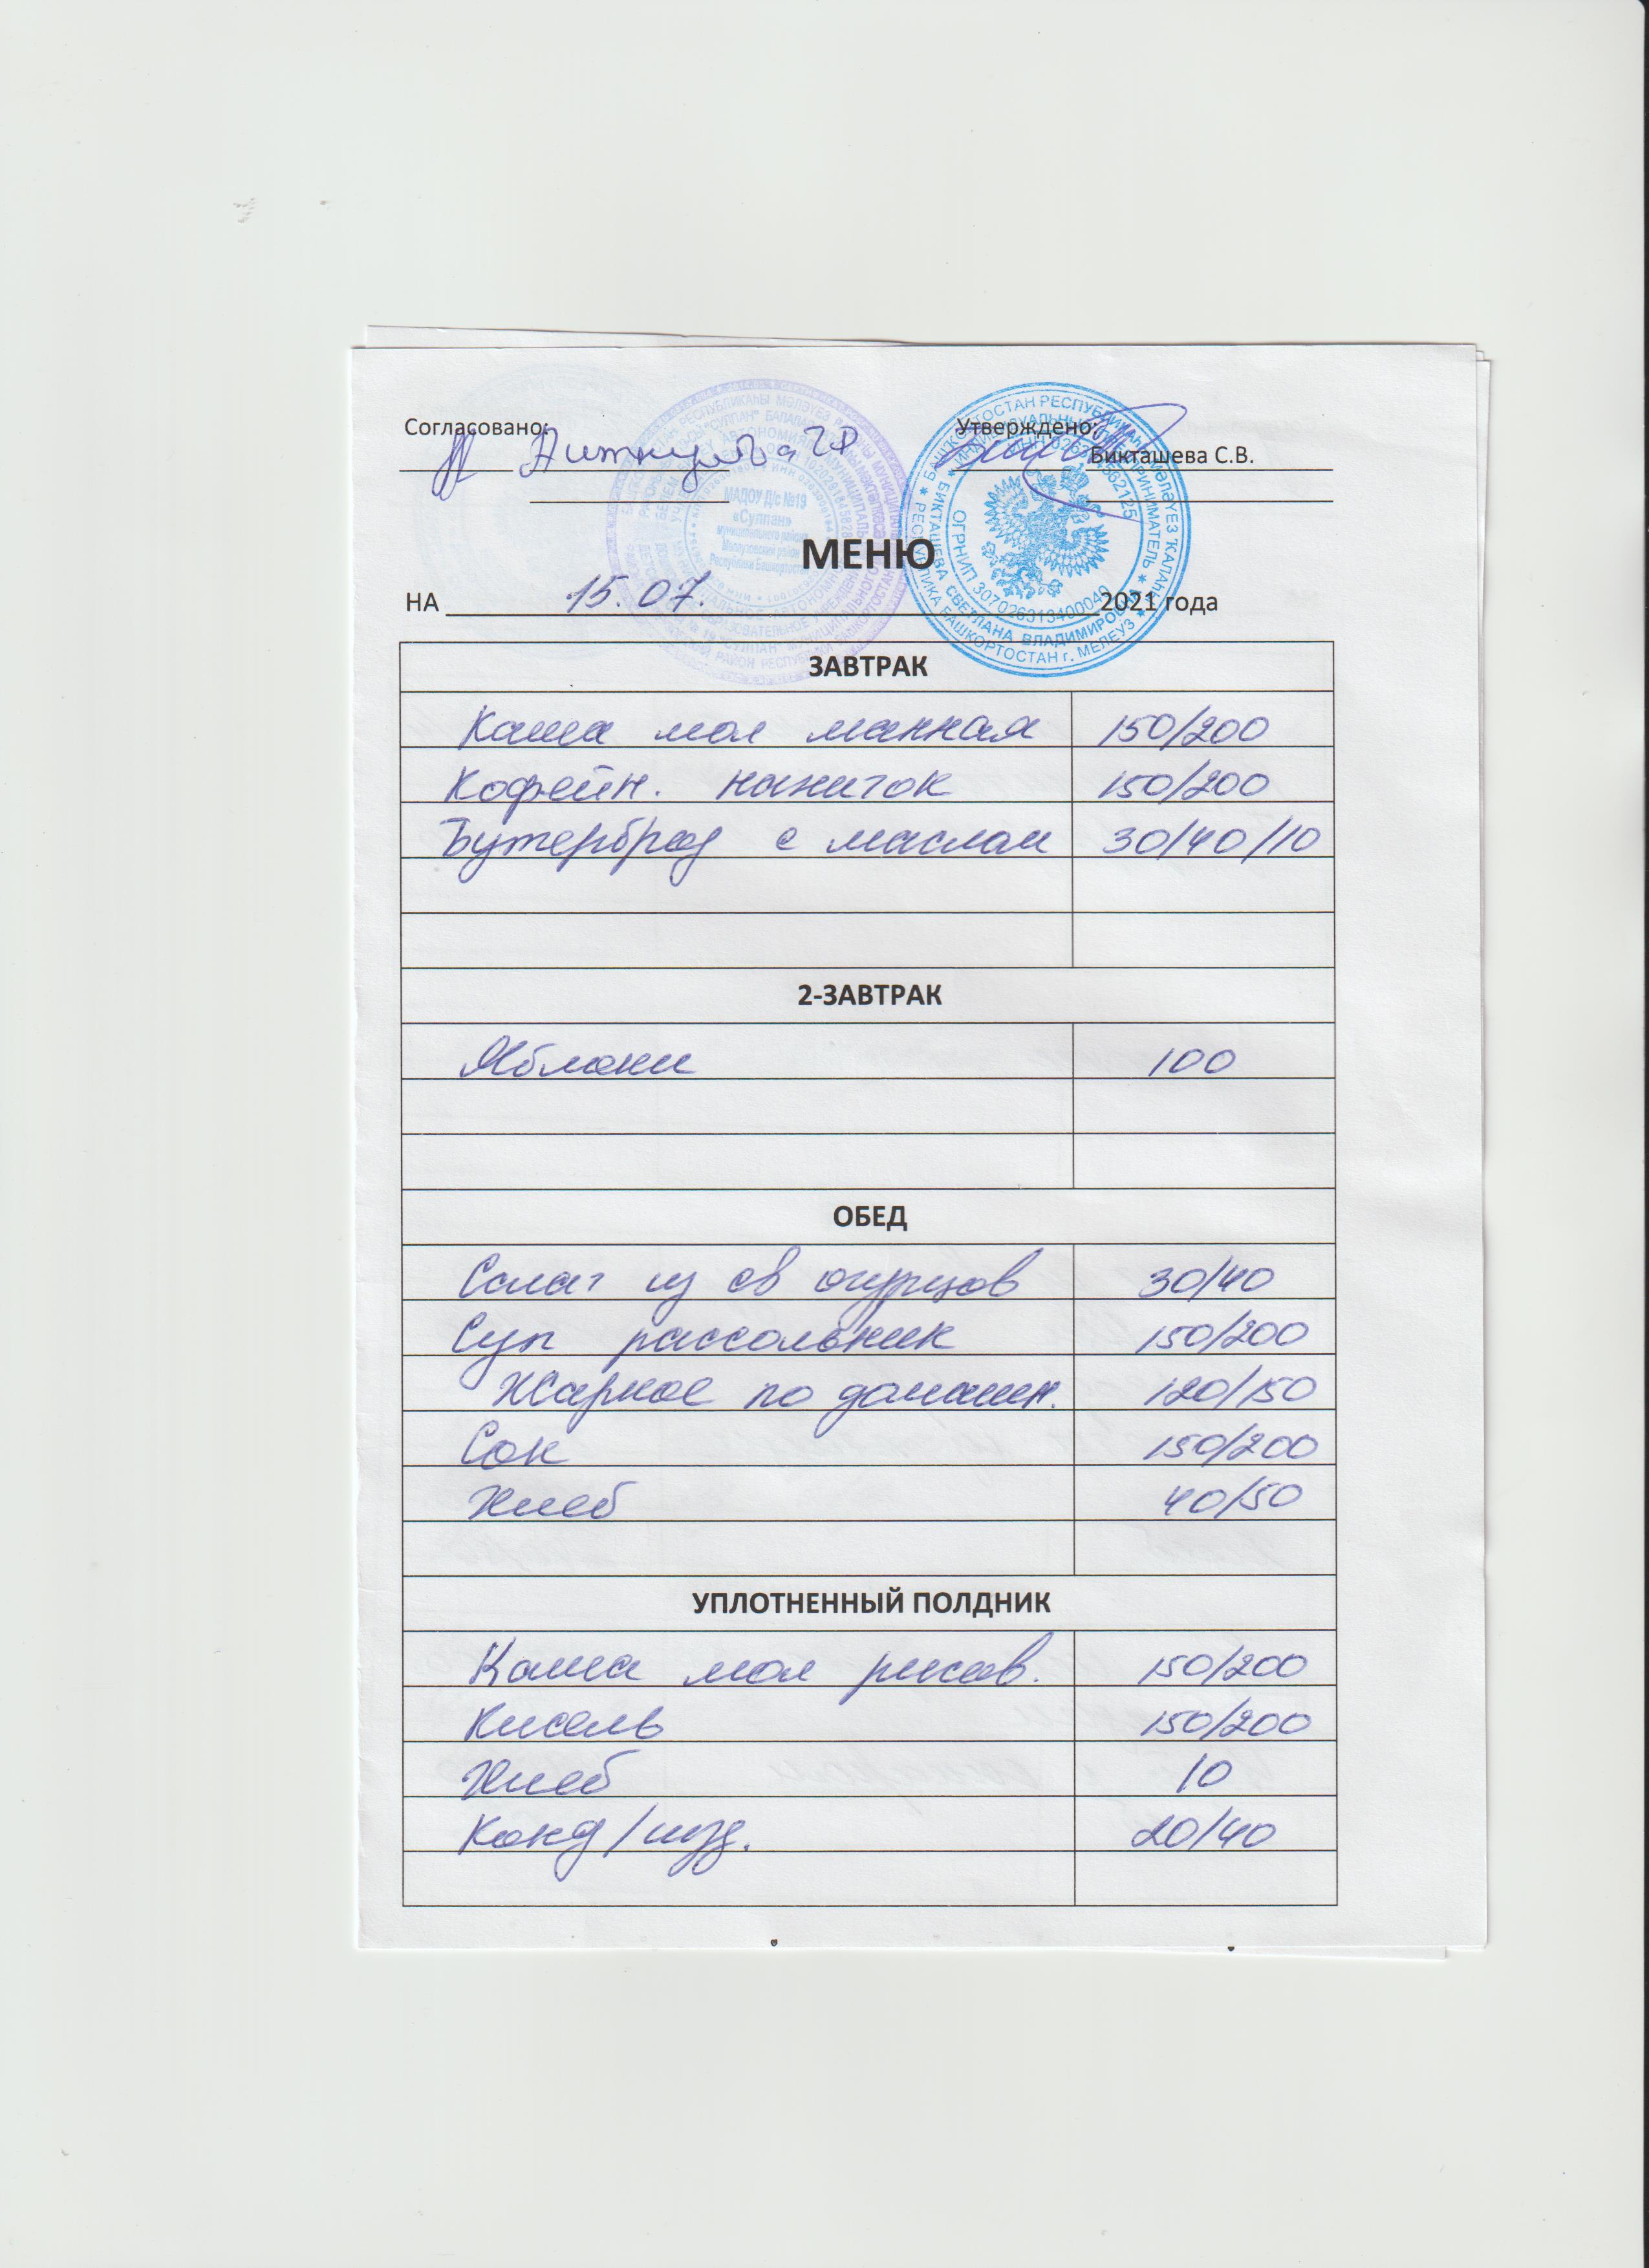 Согласовано:
Утверждено:
Бикташева С.В.
МАДОУ Д/с №19
«Сулпан»
муниципального района
Мелеузовский район
Республики Башкортостан
МЕНЮ
НА 15.07. 2021 года
ЗАВТРАК
Каша мол манная 150/200
Кофейн. напиток 150/200
Бутерброд с маслом 30/40/10
2-ЗАВТРАК
Яблоки 100
ОБЕД
Салат из св огурцов 30/40
Суп рассольник 150/200
Жаркое по домашн. 120/150
Сок 150/200
Хлеб 40/50
УПЛОТНЕННЫЙ ПОЛДНИК
Каша мол рисов. 150/200
Кисель 150/200
Хлеб 10
Конд/изд. 20/40